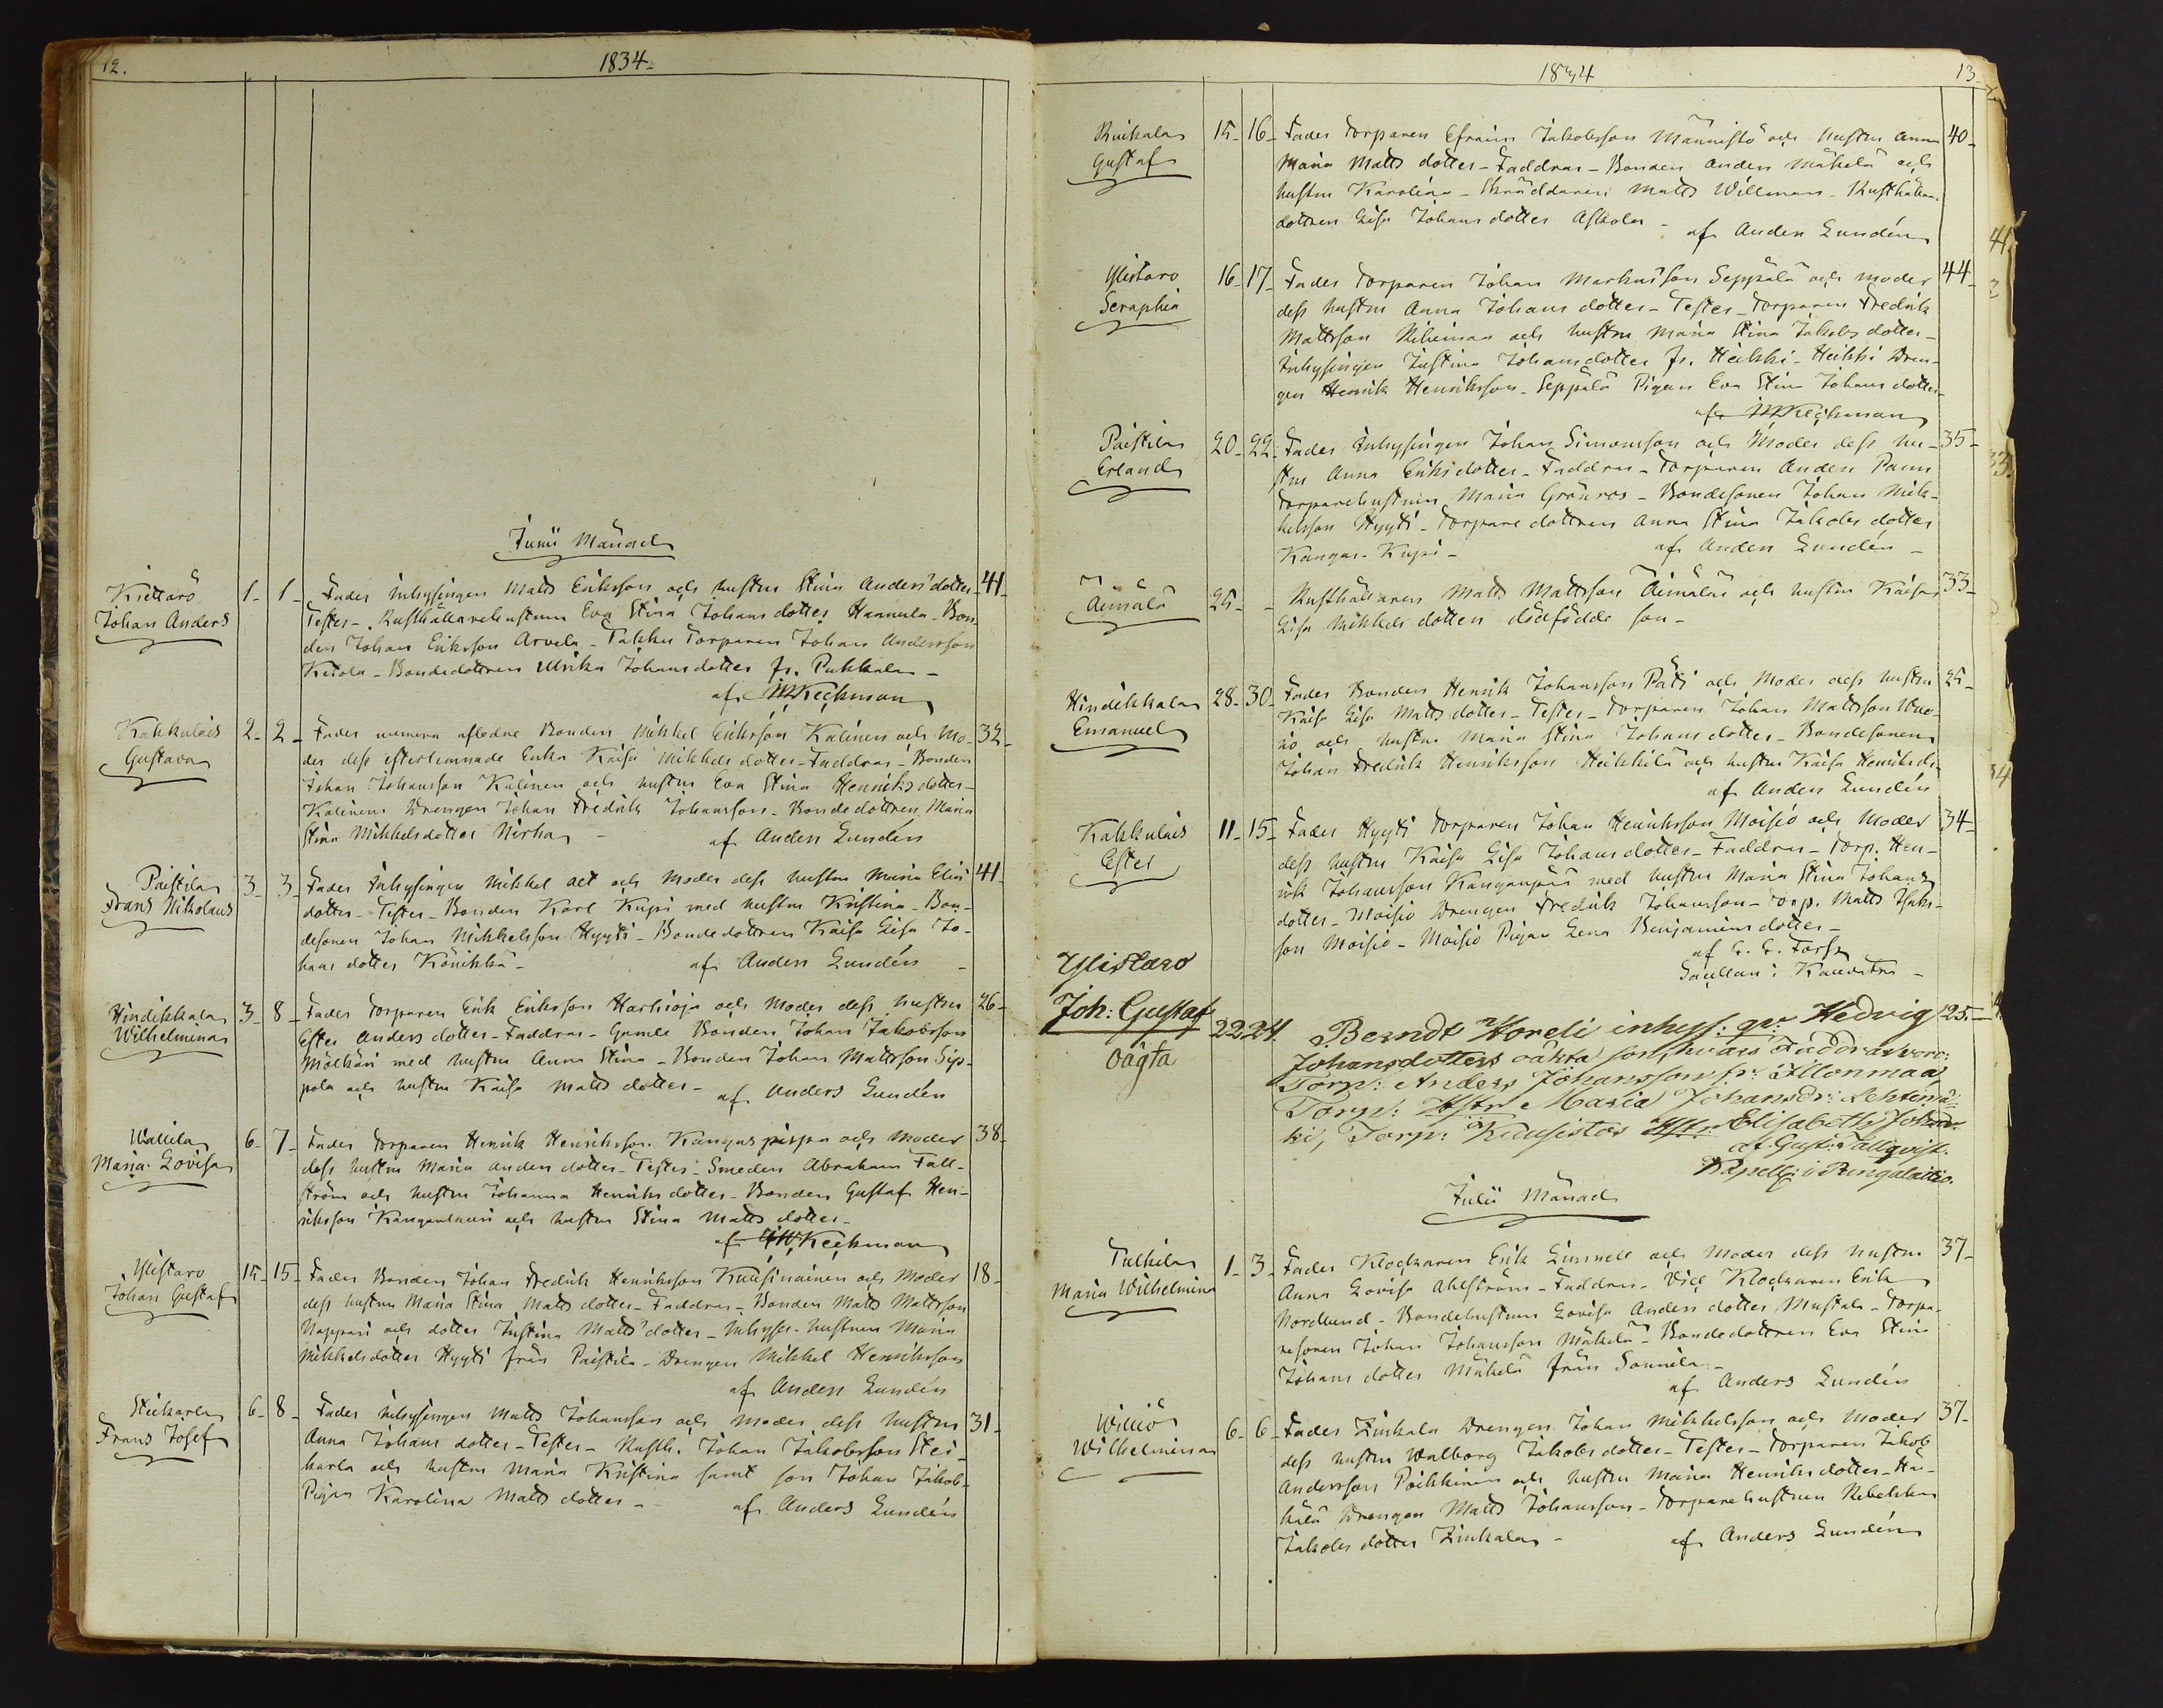 12.
1834.
Junii Månad
Kiettarö
Johan Anders
1. 1. Fader inhysingen Matts Eriksson och hustru Stina Andersdotter 41
Testes. Rusthållarehustrun Eva Stina Johans dotter Hannula. Bon
den Johan Eriksson Arvela. Takku Torparen Johan Andersson
Ketola. Bondedottren Ulrika Johansdotter fr. Pukkala
af Keckman
Kakkulais
Gustava
2. 2. Fader numera afledne Bonden Mikkel Eriksson Kalinen och Mo- 32
der dess efterlemnade Enka Kaisa Mikkels dotter. Faddrar. Bonden
Johan Johansson Kalinen och hustru Eva Stina Henriksdotter
Kalinens Drengen Johan Fredrik Johansson. Bondedottren Maria
Stina Mikkelsdotter Nirha
af Anders Lundén
Paistila
Frans Nikolaus
3. 3. Fader Inhysingen Mikkel och Moder dess hustru Maria Elin 41
dotter. Testes. Bonden Karl Kupi med hustru Kristina. Bon-
desonen Johan Mikkelsson Hyyti. Bondedottren Kaisa Lisa Jo-
hans dotter Könikkä
af Anders Lundén
Hindikkala
Wilhelmina
3. 8. Fader Torparen Erik Eriksson Harhioja och Moder dess hustru 26
Ester Anders dotter. Faddrar. Gamle Bonden Johan Jakobsson
Mölkäri med hustru Anna Stina. Bonden Johan Mattsson Sip-
pola och hustru Kaisa Matts dotter.
af Anders Lundén
Wallila
Maria Lovisa
6. 7. Fader Torparen Henrik Henriksson Kangaspispa och Moder 38
dess hustru Maria Anders dotter. Testes. Smeden Abraham Fall-
ström och hustru Johanna Henriks dotter. Bonden Gustaf Hen-
riksson och hustru Stina Matts dotter.
af Keckman
Ylistaro
Johan Gustaf
15. 15. Fader Bonden Johan Fredrik Henriksson Kuusinainen och Moder 18
dess hustru Maria Stina Matts dotter. Faddrar. Bonden Matts Mattsson
Nappari och dotter Justina Matts dotter. Inhyses. hustrun Maria
Mikkelsdotter Hyyti från Paistila. Drengen Mikkel Henriksson
af Anders Lundén
Steikarla
Frans Josef
6. 8. Fader inhysingen Matts Johansson och Moder dess hustru 31
Anna Johans dotter. Testes. Rusth. Johan Jakobsson Stei-
karla och hustru Maria Kristina samt son Johan Jakob.
Pigan Karolina Matts dotter.
af Anders Lundén
1834
13.
Ruikala
Gustaf
15. 16. Fader Torparen Efraim Jakobsson Männistö och hustru Anna 40
Maria Matts dotter. Faddrar. Bonden Anders Mäkelä och
hustru Karolina. Skräddaren Matts Willman. Rusthållare
dottren Lisa Johans dotter Askola
af Anders Lundén
Ylistaro
Seraphia
16. 17. Fader Torparen Johan Markusson Seppälä och Moder 44
dess hustru Anna Johans dotter. Testes. Torparen Fredrik
Mattsson och hustru Maria Stina Jakobs dotter.
Inhysingen Justina Johansdotter fr. Heikki. Heikki Dren-
gen Henrik Henriksson. Seppälä Pigan Eva Stina Johans dotter
af Keckman
Paistila
Erland
20. 22. Fader Inhysingen Johan Simonsson och Moder dess hu- 35
stru Anna Eriksdotter. Faddrar. Torparen Anders Panu
Torparehustrun Maria Grönros. Bondesonen Johan Mik-
kelsson Hyyti. Torpare dottren Anna Stina Jakobs dotter
Kangas. Kupi.
af Anders Lundén
Äimälä
25. Rusthållaren Matts Mattsson Äimälä och hustru Kaisa 33
Lisa Mikkels dotters dödfödde son
Hindikkala
Emanuel
28. 30. Fader Bonden Henrik Johansson Päti och Moder dess hustru 25
Kaisa Lisa Matts dotter. Testes. Torparen Johan Mattsson Wuo-
rio och hustru Maria Stina Johans dotter. Bondesonen
Johan Fredrik Henriksson Heikkilä och hustru Kaisa Henriksdr
af Anders Lundén
Kakkulais
Ester
11. 15. Fader Hyyti Torparen Johan Henriksson Moisio och Moder 34
dess hustru Kaisa Lisa Johans dotter. Faddrar. Torp. Hen-
rik Johansson Kanganpää med hustru Maria Stina Johans
dotter. Moisio Drengen Fredrik Johansson. Torp. Matts Isaks-
son Moisio. Moisio Pigan Lena Benjamins dotter
af
Ylistaro
Joh: Gustaf
oägta
22. 24. Berndt Horeli inhys: qv: Hedvig 25
Johansdotters oäkta son, hvars Faddrar voro:
Torp: Anders Johansson fr: Allonmaa,
Torp: Hstr Maria Johansdr: Lehtimä-
ki, Torp: Kuusistos Hstr Elisabeth Johans-
af Gust: Tallqvist.
Kapell: i Pungalaitio.
Julii Månad
Tulkila
Maria Wilhelmina
1. 3. Fader Klockaren Erik Limnell och Moder dess hustru 37
Anna Lovisa Ahlström. Faddrar. Vice Klockaren Erik
Nordlund. Bondehustrun Lovisa Anders dotter Mustala. Torpa-
resonen Johan Johansson Mäkelä. Bondedottren Eva Stina
Johans dotter Mäkelä från Sonnila.
af Anders Lundén
Williö
Wilhelmina
6. 6. Fader Zinkala Drengen Johan Mikkelsson och Moder 37
dess hustru Walborg Jakobs dotter. Testes. Torparen Jakob
Andersson Poikkinen och hustru Maria Henriksdotter. Hä-
källä Drengen Matts Johansson. Torparehustrun Rebekka
Jakobs dotter Zinkala
af Anders Lundén